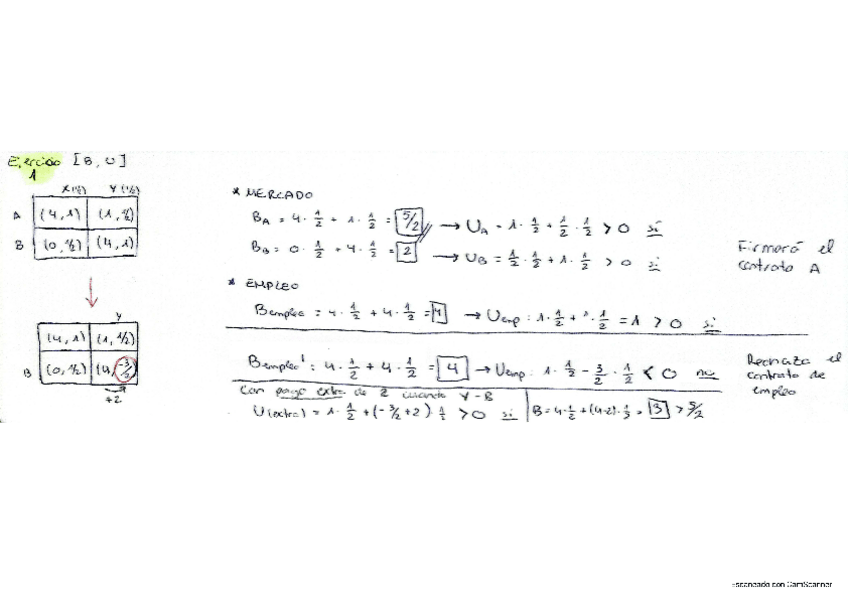 Ejercicio [B, U]
1
X (½) Y (½)
A (4, 1) (1, ½)
B (0, ½) (4, 1)
Y
(4, 1) (1, 1/2)
B (0, ½) (4, -3/2)
+2
* MERCADO
B_A = 4 · 1/2 + 1 · 1/2 = 5/2 → U_A = 1 · 1/2 + 1/2 · 1/2 > 0 si
B_B = 0 · 1/2 + 4 · 1/2 = 2 → U_B = 1/2 · 1/2 + 1 · 1/2 > 0 si
Firmará el
contrato A
* EMPLEO
B empleo = 4 · 1/2 + 4 · 1/2 = 4 → U emp: 1 · 1/2 + 1 · 1/2 = 1 > 0 si
B empleo': 4 · 1/2 + 4 · 1/2 = 4 → U emp: 1 · 1/2 - 3/2 · 1/2 < 0 no
Rechaza el
contrato de
empleo
Con pago extra de 2 cuando Y - B
U(extra) = 1 · 1/2 + (-3/2 + 2) · 1/2 > 0 si | B = 4 · 1/2 + (4-2) · 1/2 = 3 > 5/2
Escaneado con CamScanner